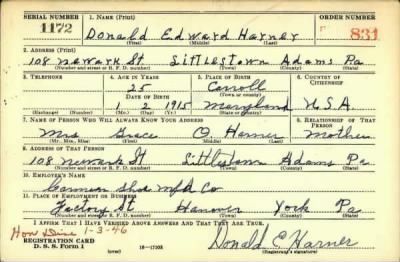 SERIAL NUMBER 1. NAME (Print) ORDER NUMBER
1172 Donald Edward Harner 831
(First) (Middle) (Last)
2. ADDRESS (Print)
108 Newark St Littlestown Adams Pa
(Number and street or R. F. D. number) (Town) (County) (State)
3. TELEPHONE 4. AGE IN YEARS 5. PLACE OF BIRTH 6. COUNTRY OF CITIZENSHIP
25 Carroll
DATE OF BIRTH (Town or county)
1 2 1915 Maryland U.S.A.
(Exchange) (Number) (Mo.) (Day) (Yr.) (State or country)
7. NAME OF PERSON WHO WILL ALWAYS KNOW YOUR ADDRESS 8. RELATIONSHIP OF THAT PERSON
Mrs Grace O. Harner Mother
(Mr., Mrs., Miss) (First) (Middle) (Last)
9. ADDRESS OF THAT PERSON
108 Newark St Littlestown Adams Pa
(Number and street or R. F. D. number) (Town) (County) (State)
10. EMPLOYER'S NAME
Shoe Mfd Co
11. PLACE OF EMPLOYMENT OR BUSINESS
Factory St Hanover York Pa
(Number and street or R. F. D. number) (Town) (County) (State)
I AFFIRM THAT I HAVE VERIFIED ABOVE ANSWERS AND THAT THEY ARE TRUE.
Hon Disc 1-3-46
REGISTRATION CARD
D. S. S. Form 1 (over) 16-17105 Donald E Harner
(Registrant's signature)